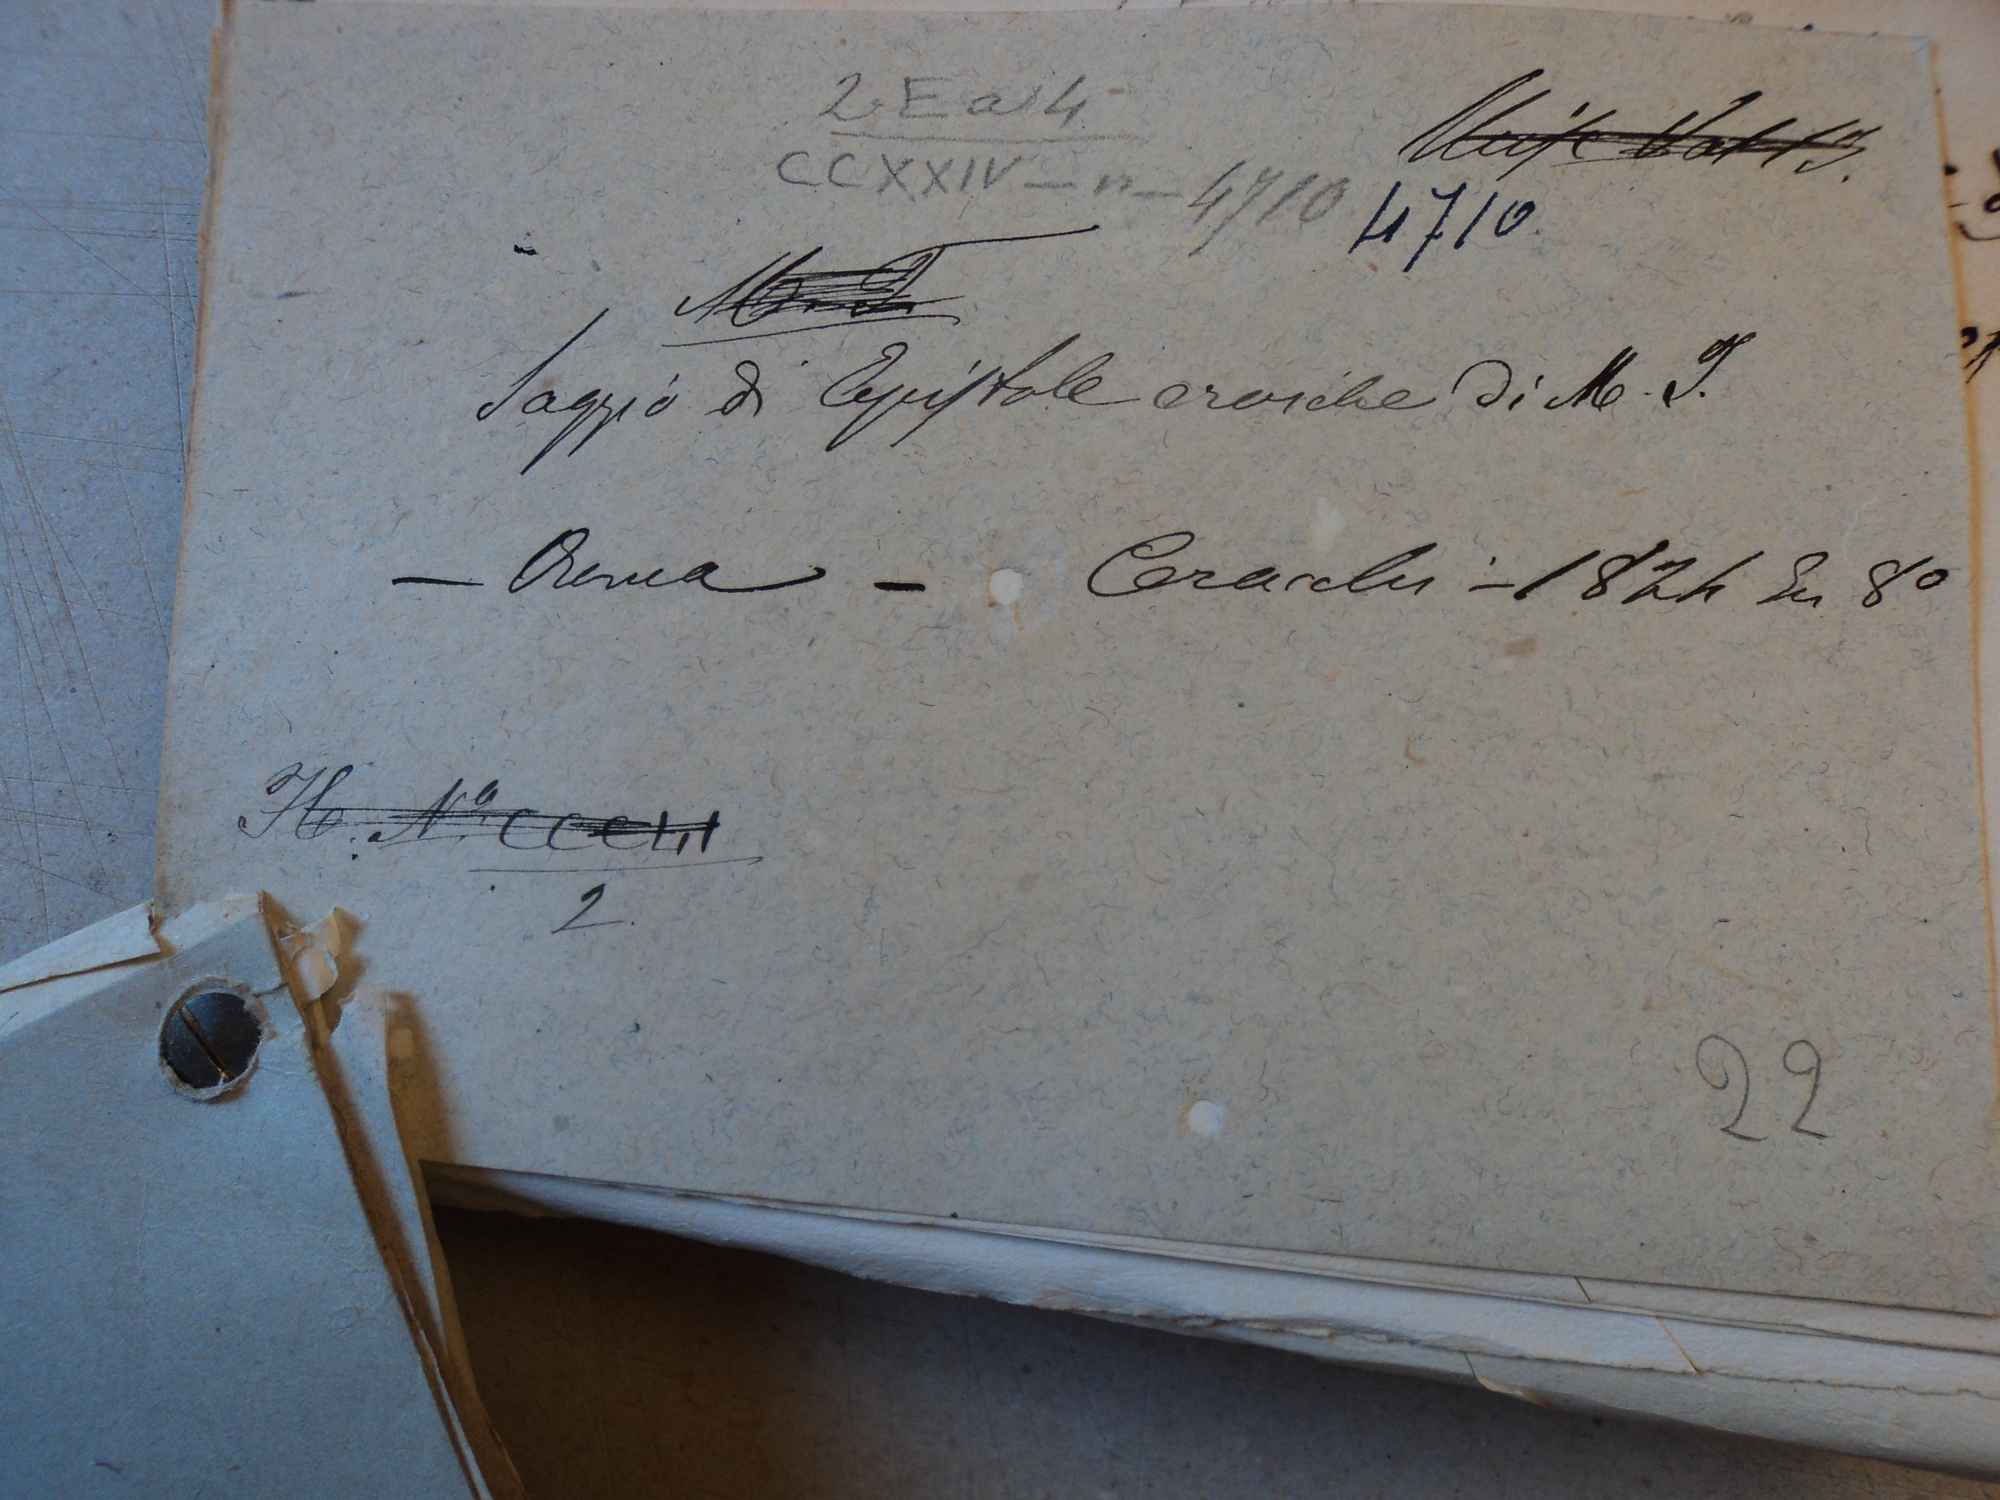 2. E a 4
CCXXIV - n - 4710
4710.
Saggio di Epistole eroiche di M. T.
- Crema - - 1824 In 8º
H. Nº CCCLII
2.
22